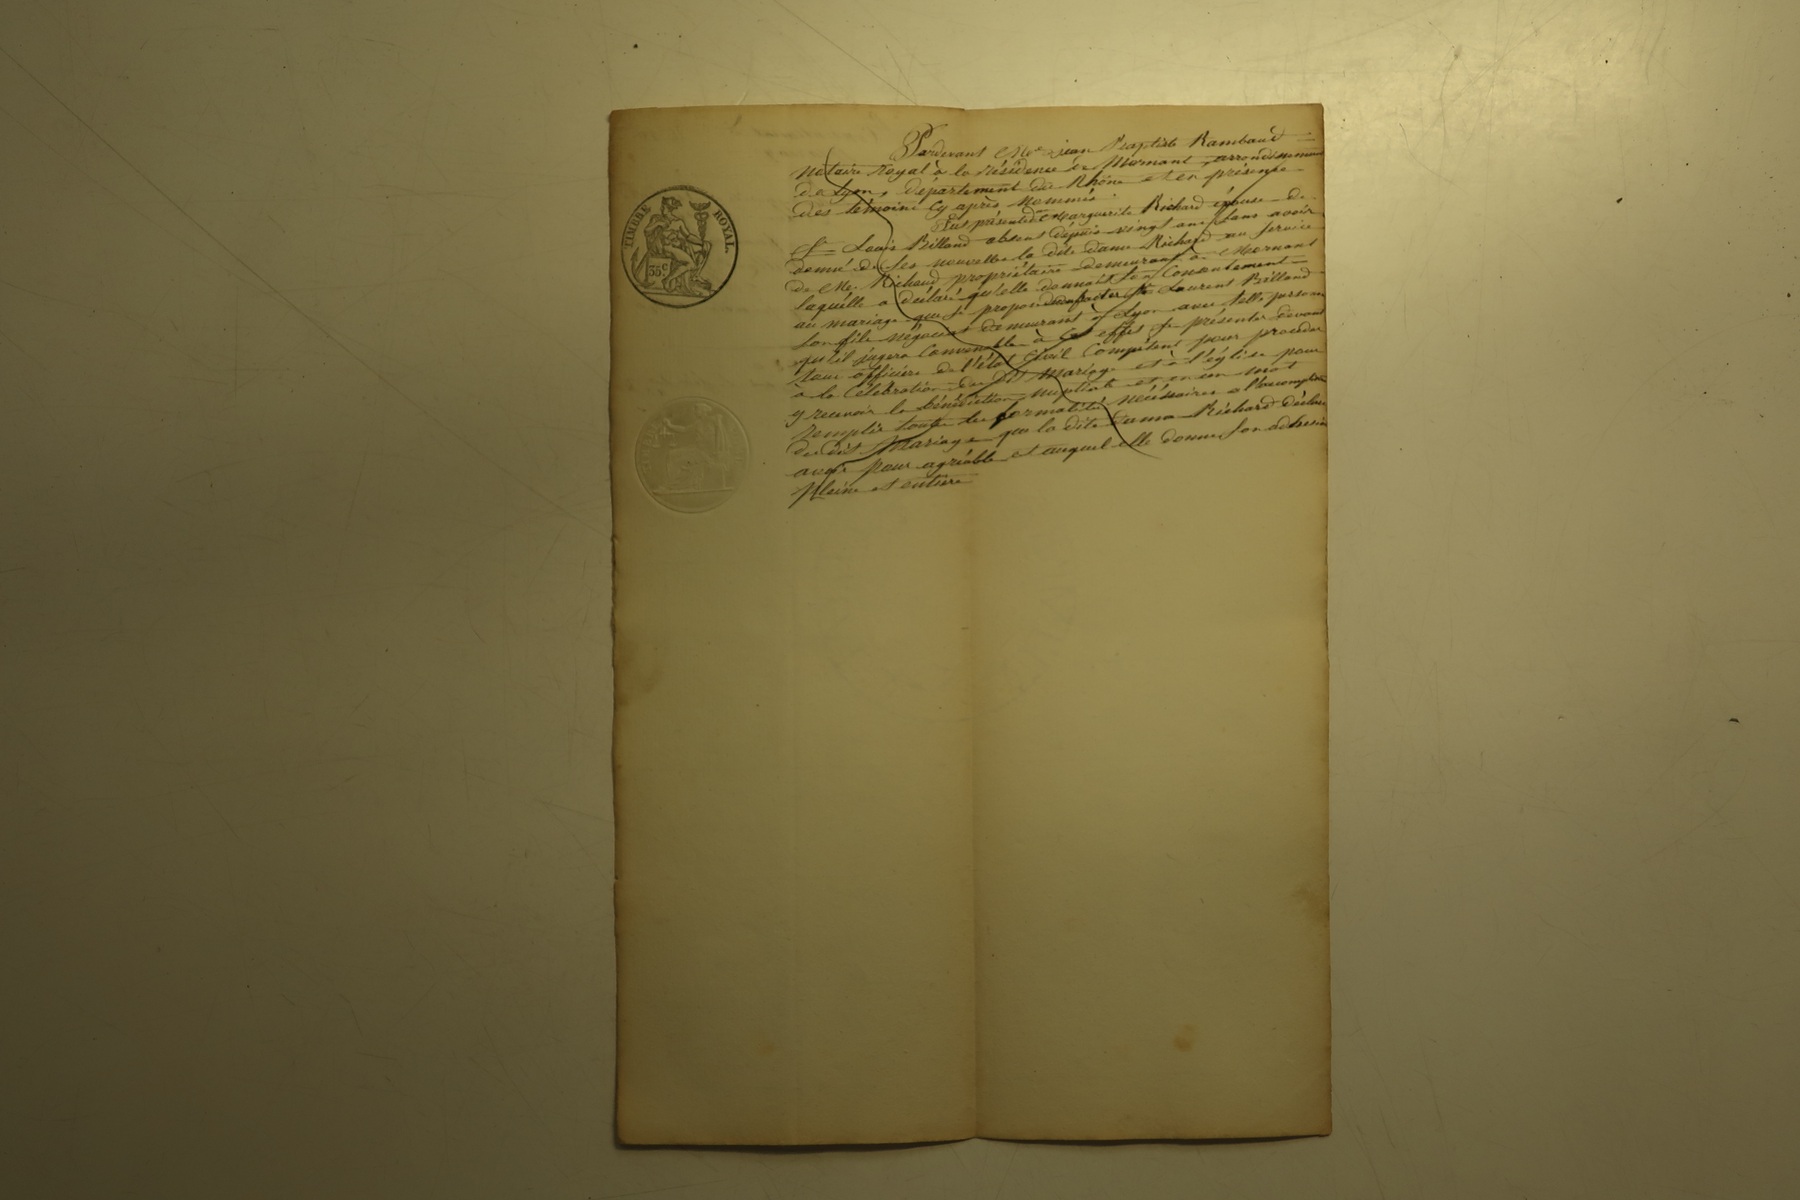 TIMBRE ROYAL.
35 c
Pardevant Me jean Baptiste Rambaud
Notaire Royal à la résidence de Mornant, arrondissement
de Lyon, département du Rhône et en présence
des témoins cy après Nommés.
Fut présente Marguerite Richard épouse de
Sr Louis Billand absent depuis vingt ans sans avoir
donné de ses nouvelles la dite dame Richard au service
de Me Richaud propriétaire demeurant à Mornant
laquelle a déclaré qu'elle donnait son Consentement
au mariage que se propose Laurent Billand
son fils négociant demeurant à Lyon avec telle personne
qu'il jugera Convenable à Cet effet se présenter devant
tous officiers de l'état Civil Compétent pour procéder
à la Célébration du dit Mariage et à l'église pour
y recevoir la bénédiction nuptiale et en un mot
remplir toutes les formalités nécéssaires a l'accomplisst
du dit Mariage que la dite Dame Richard déclare
avoir pour agréable et auquel elle donne son adhésion
pleine et entière